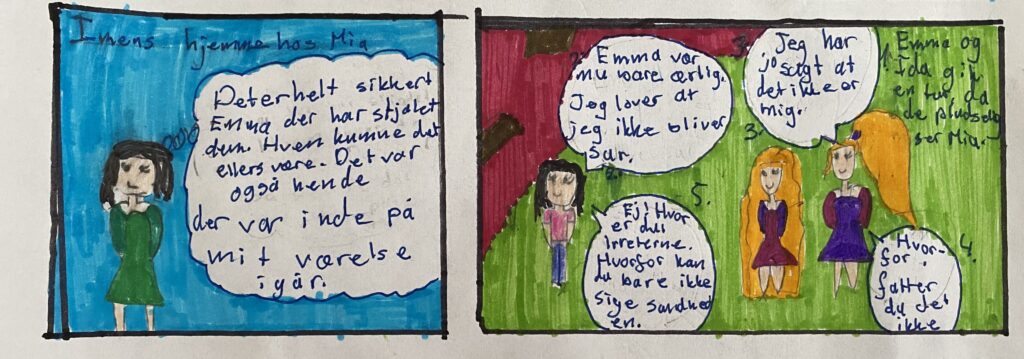 Imens hjemme hos Mia
Det er helt sikkert
Emma der har stjålet
den. Hvem kunne det
ellers være. Det var
også hende
der var inde på
mit værelse
igår.
1. Emma og
Ida gik
en tur da
de pludselig
ser Mia.
2. Emma vær
nu bare ærlig.
Jeg lover at
jeg ikke bliver
sur.
3. Jeg har
jo sagt at
det ikke er
mig.
3.
4.
Hvor-
for
fatter
du det
ikke
5.
Ej! Hvor
er du
irreterne.
Hvorfor kan
du bare ikke
sige sandhed
en.